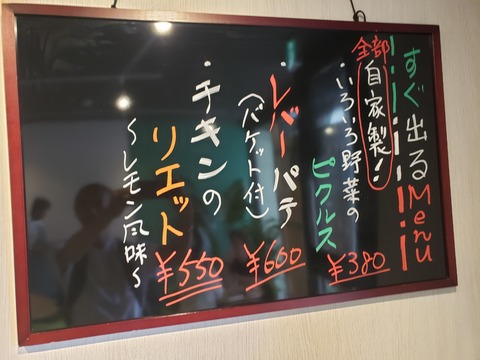 すぐ出るMenu
全部自家製!
・いろいろ野菜の
ピクルス
¥380
・レバーパテ
(バケット付)
¥600
・チキンの
リエット
〜レモン風味〜
¥550